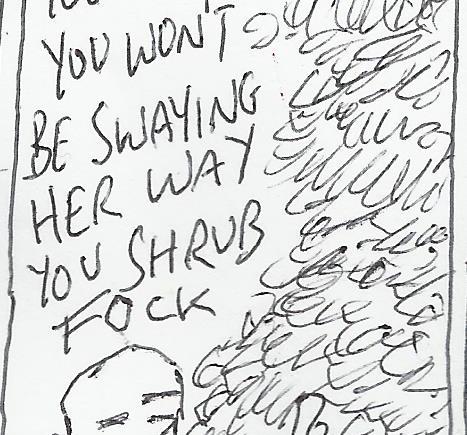 YOU WON'T
BE SWAYING
HER WAY
YOU SHRUB
FOCK